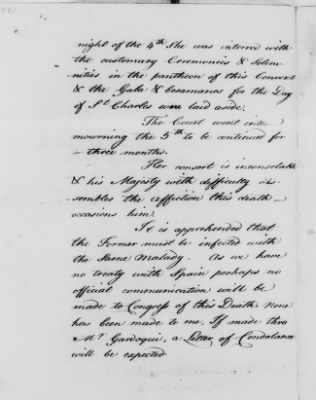 night of the 4th She was interred with
the customary Ceremonies & Solem
nities in the pantheon of this Convent
& the Gala & besamanos for the Day
of St Charles were laid aside.
The Court went into
mourning the 5th to be continued for
three months.
Her consort is inconsolable
& his Majesty with difficulty dis-
sembles the affliction this death
occasions him.
It is apprehended that
the Former must be infected with
the Same Malady. As we have
no treaty with Spain perhaps no
official communication will be
made to Congress of this Death. None
has been made to me, If made thro
Mr Gardoqui, a Letter of Condolance
will be expected